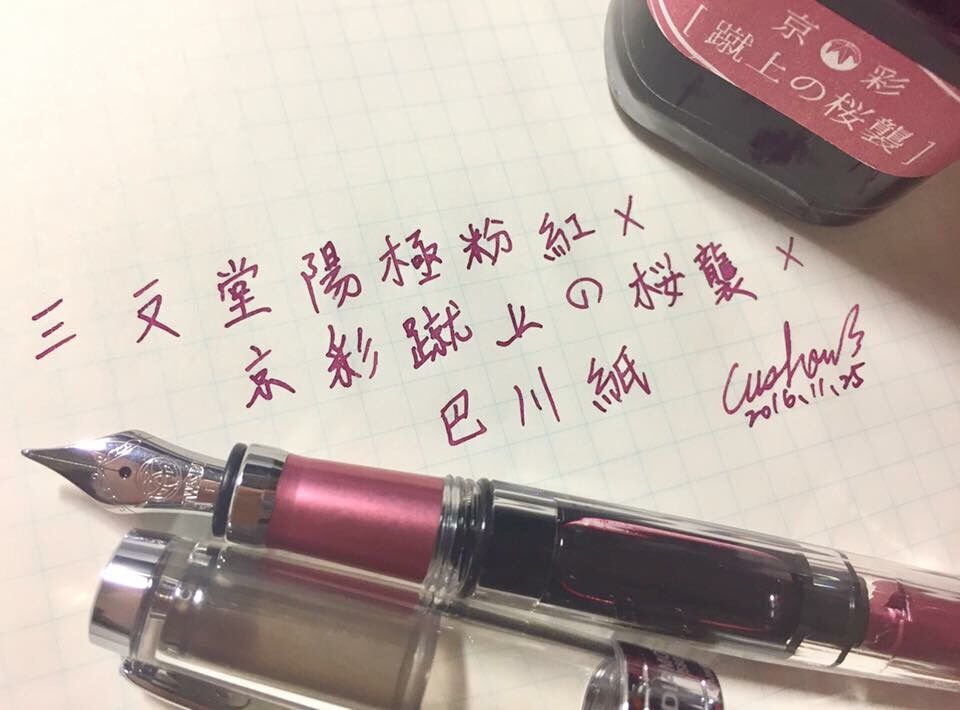 京彩
[蹴上の桜襲]
三文堂陽極粉紅×
京彩蹴上の桜襲×
巴川紙
2016.11.25